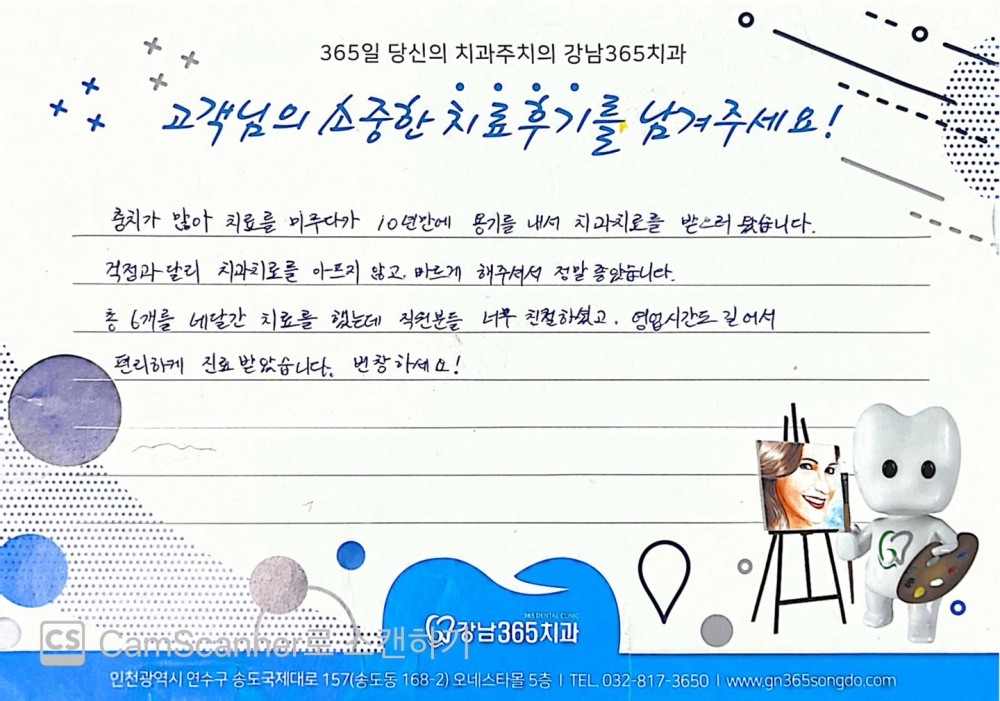 365일 당신의 치과주치의 강남365치과
고객님의 소중한 치료후기를 남겨주세요!
충치가 많아 치료를 미루다가 10년만에 용기를 내서 치과치료를 받으러 왔습니다.
걱정과 달리 치과치료를 아프지 않고, 바르게 해주셔서 정말 좋았습니다.
총 6개를 네달간 치료를 했는데 직원분들 너무 친절하셨고, 영업시간도 길어서
편리하게 진료받았습니다. 번창하세요!
365 DENTAL CLINIC
강남365치과
CS CamScanner로 스캔하기
인천광역시 연수구 송도국제대로 157(송도동 168-2) 오네스타몰 5층 | TEL. 032-817-3650 | www.gn365songdo.com